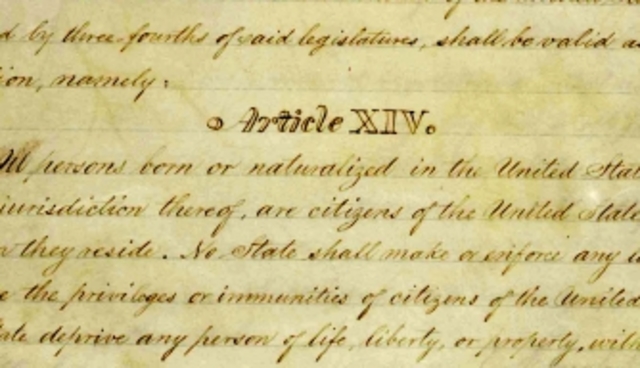 d by three-fourths of said legislatures, shall be valid a
ion, namely:
Article XIV.
All persons born or naturalized in the United Stat
jurisdiction thereof, are citizens of the United State
n they reside. No State shall make or enforce any
e the privileges or immunities of citizens of the United
tate deprive any person of life, liberty, or property, with